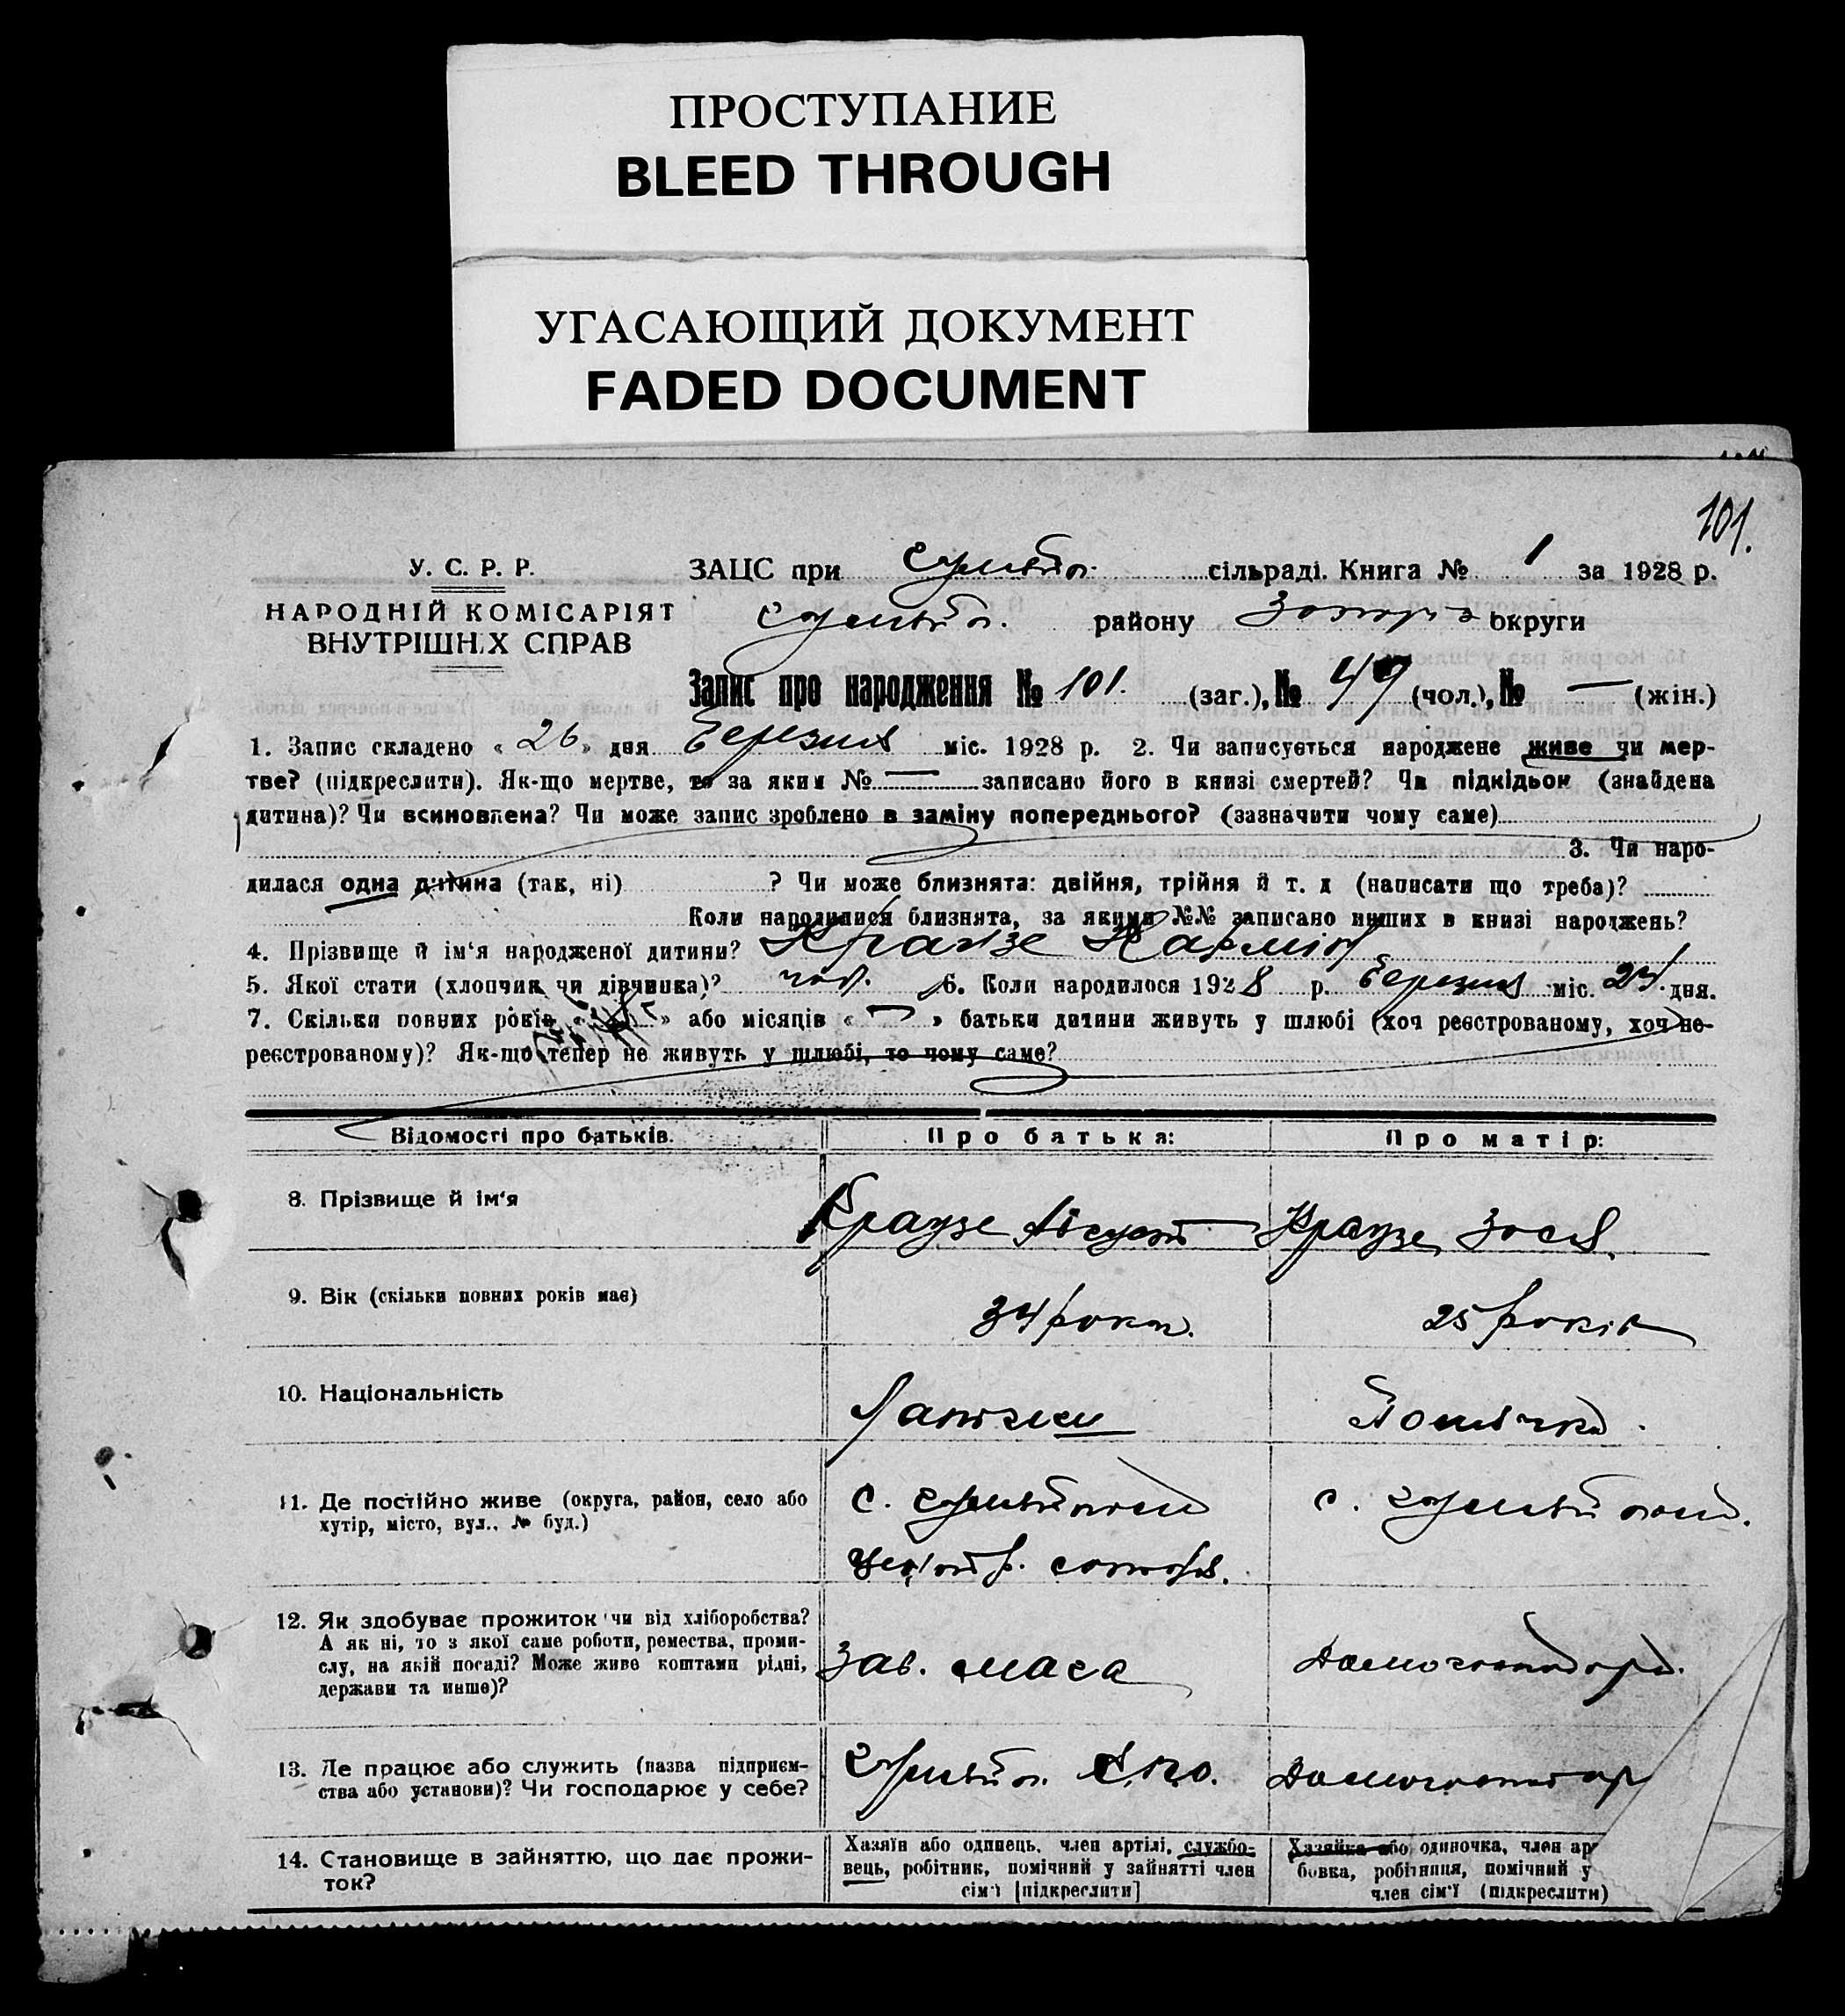 ПРОСТУПАНИЕ
BLEED THROUGH
УГАСАЮЩИЙ ДОКУМЕНТ
FADED DOCUMENT
101.
У. С. Р. Р.
НАРОДНІЙ КОМІСАРІЯТ
ВНУТРІШНІХ СПРАВ
ЗАЦС при сільраді. Книга № 1 за 1928 р.
району округи
Запис про народження № 101. (заг.), № 49 (чол.), № — (жін.)
1. Запис складено « 26 » дня Березня міс. 1928 р. 2. Чи записується народжене живе чи мер-
тве? (підкреслити). Як-що мертве, то за яким № — записано його в книзі смертей? Чи підкідьок (знайдена
дитина)? Чи всиновлена? Чи може запис зроблено в заміну попереднього? (зазначити чому саме)
3. Чи наро-
дилася одна дитина (так, ні) ? Чи може близнята: двійня, трійня й т. д (написати що треба)?
Коли народилися близнята, за якими №№ записано инших в книзі народжень?
4. Прізвище й ім‘я народженої дитини? Краузе
5. Якої стати (хлопчик чи дівчинка)? чол. 6. Коли народилося 1928 р. Березня міс. 24. дня.
7. Скільки повних років « » або місяців « — » батьки дитини живуть у шлюбі (хоч реєстрованому, хоч не-
реєстрованому)? Як-що тепер не живуть у шлюбі, то чому саме?
Відомості про батьків. Про батька: Про матір:
8. Прізвище й ім‘я Краузе Август Краузе Зося.
9. Вік (скільки повних років має) 34 роки. 25 років
10. Національність Латиш Полячка.
11. Де постійно живе (округа, район, село або
хутір, місто, вул., № буд.) с. с.
12. Як здобуває прожиток чи від хліборобства?
А як ні, то з якої саме роботи, ремества, проми-
слу, на якій посаді? Може живе коштами рідні,
держави та инше)? Зав. Домогосподарк.
13. Де працює або служить (назва підприєм-
ства або установи)? Чи господарює у себе? Домогосподар
14. Становище в зайняттю, що дає прожи-
ток?
Хазяїн або одинець, член артілі, службо-
вець, робітник, помічний у зайнятті член
сім‘ї [підкреслити]
Хазяйка або одиночка, член ар
бовка, робітниця, помічний у
член сім‘ї (підкреслити)